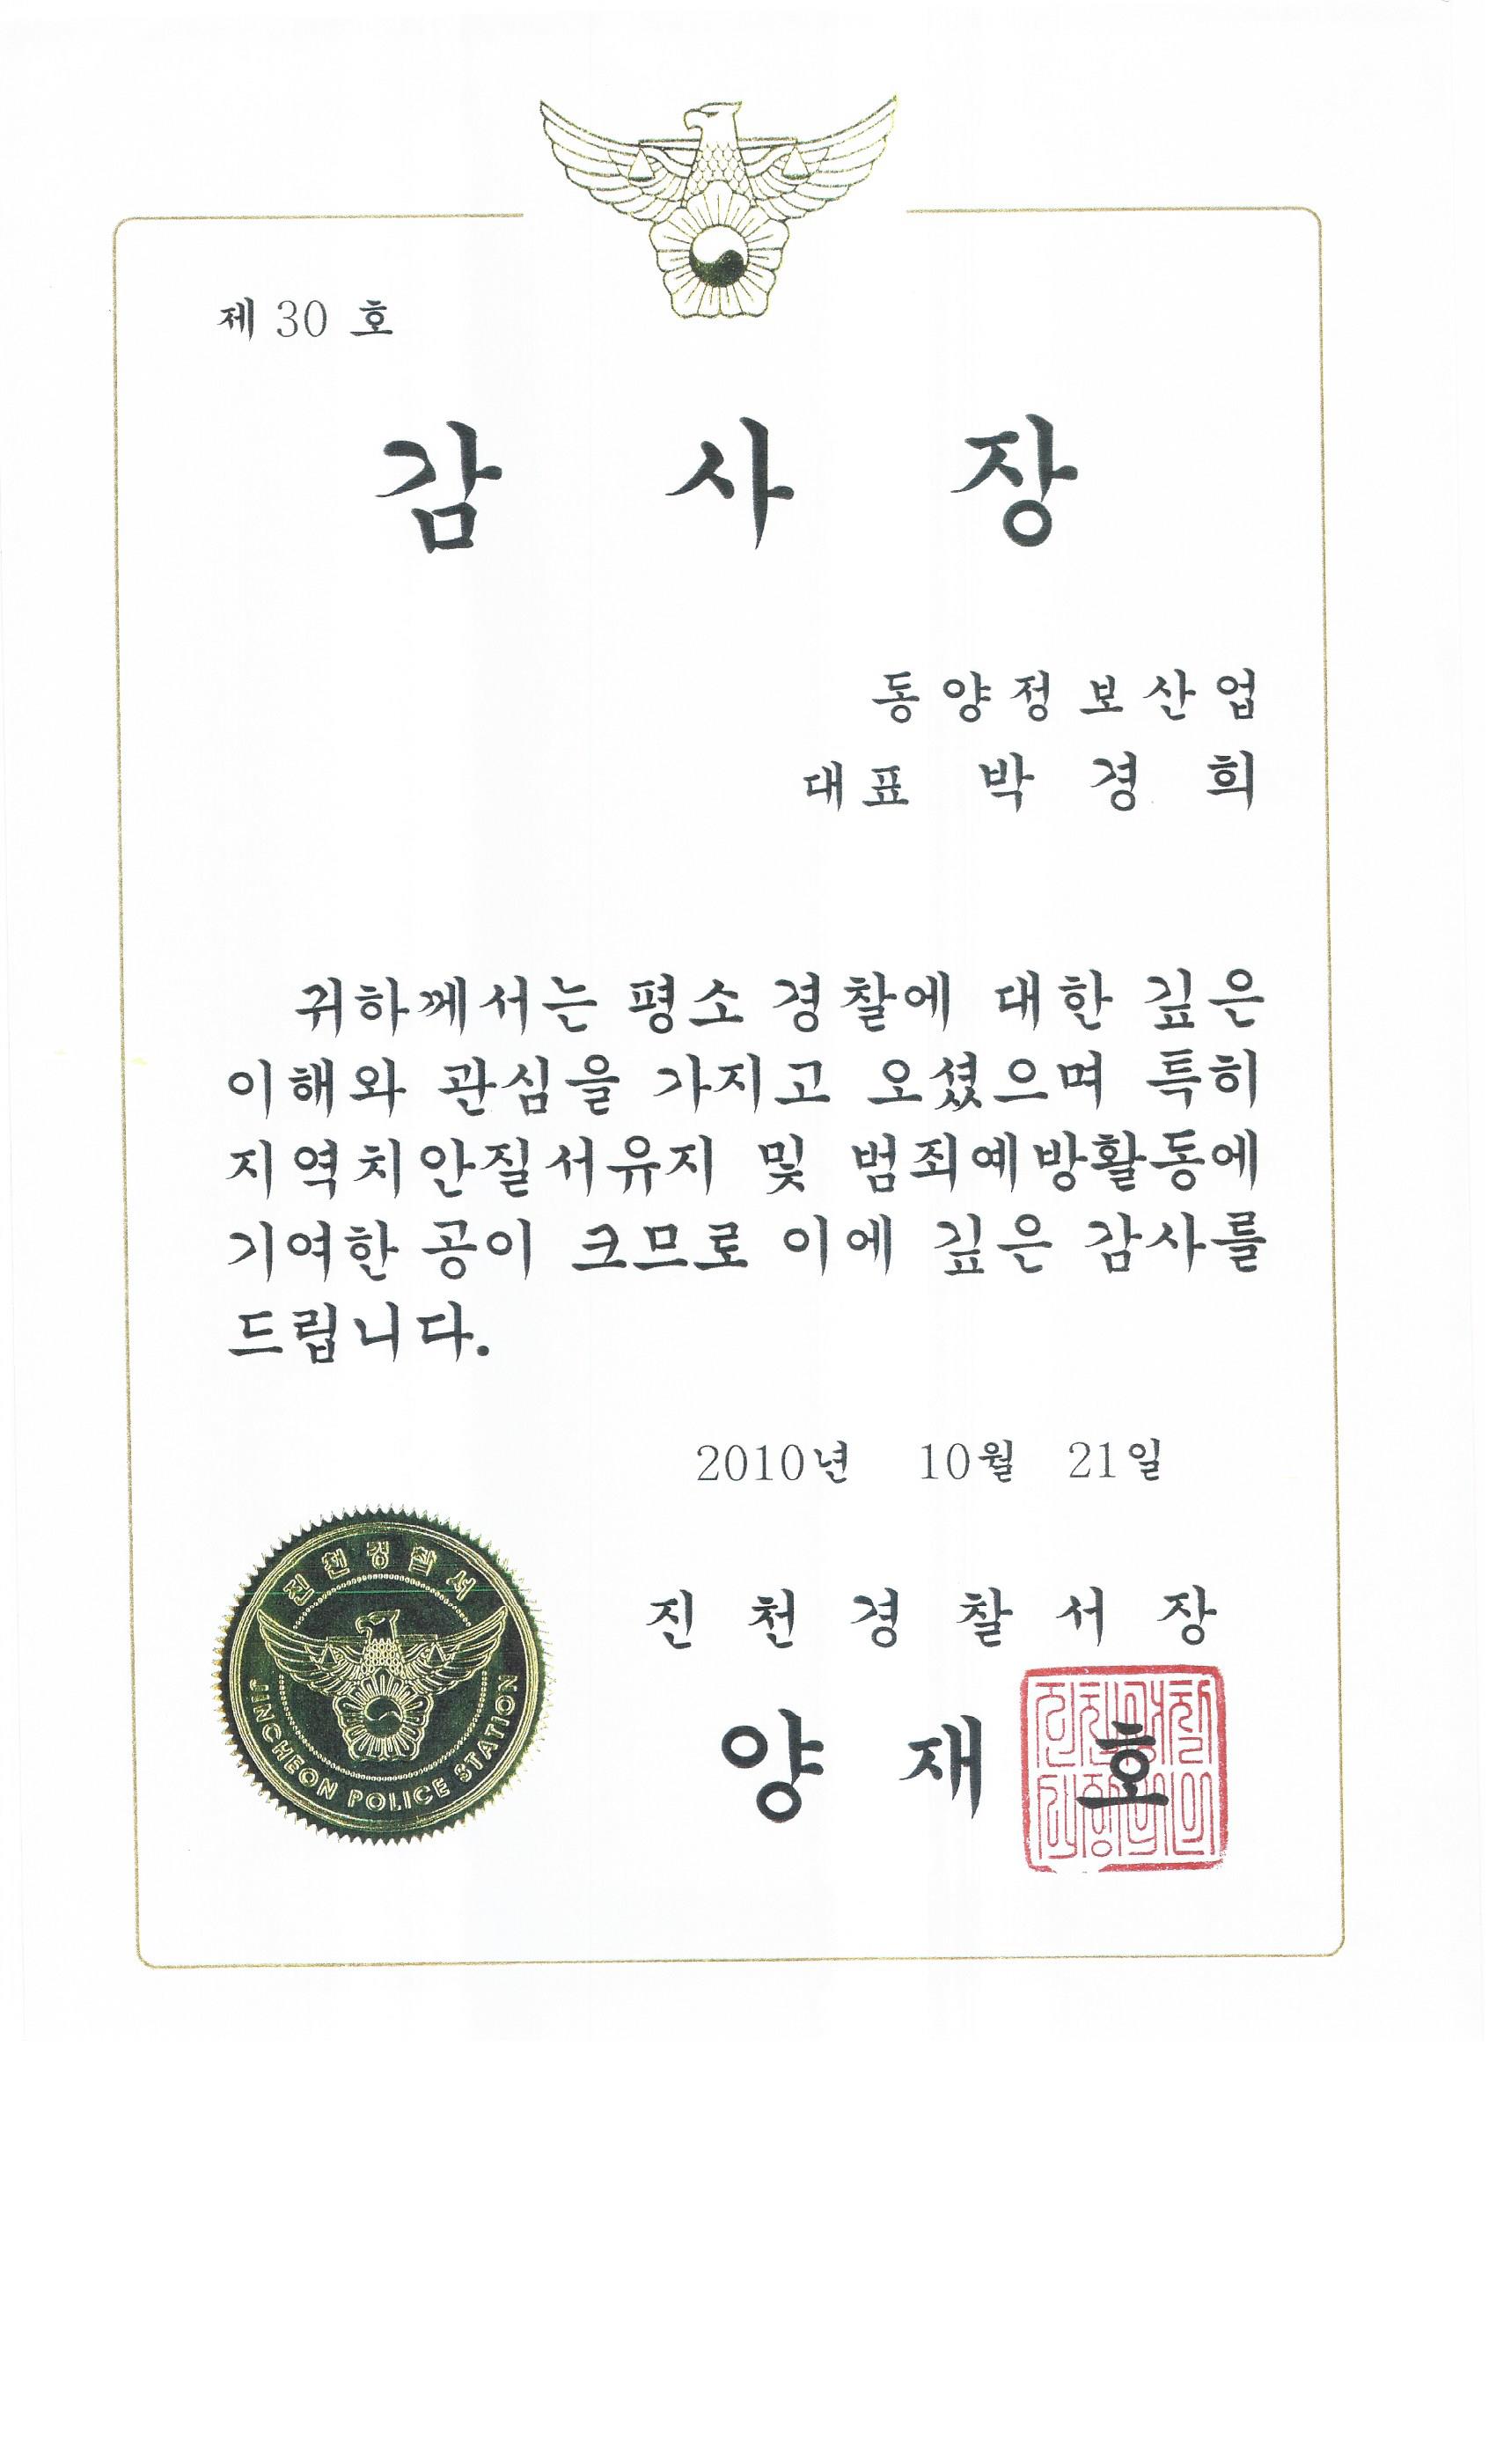 제 30 호
감 사 장
동양정보산업
대표 박 경 희
귀하께서는 평소 경찰에 대한 깊은
이해와 관심을 가지고 오셨으며 특히
지역치안질서유지 및 범죄예방활동에
기여한 공이 크므로 이에 깊은 감사를
드립니다.
2010년 10월 21일
진천경찰서
JINCHEON POLICE STATION
진 천 경 찰 서 장
양 재 호